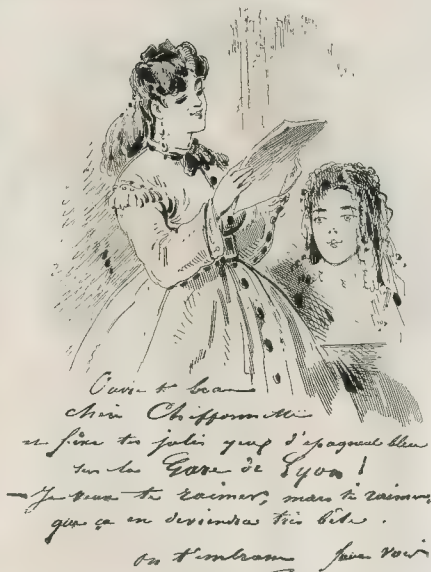 Ouvre
chère Chiffonnette
et fixe tes jolis yeux d'espagnol bleu
sur la Gare de Lyon !
— Je veux te raimer, mais te raimer,
que ça en deviendra très bête.
on t'embrasse